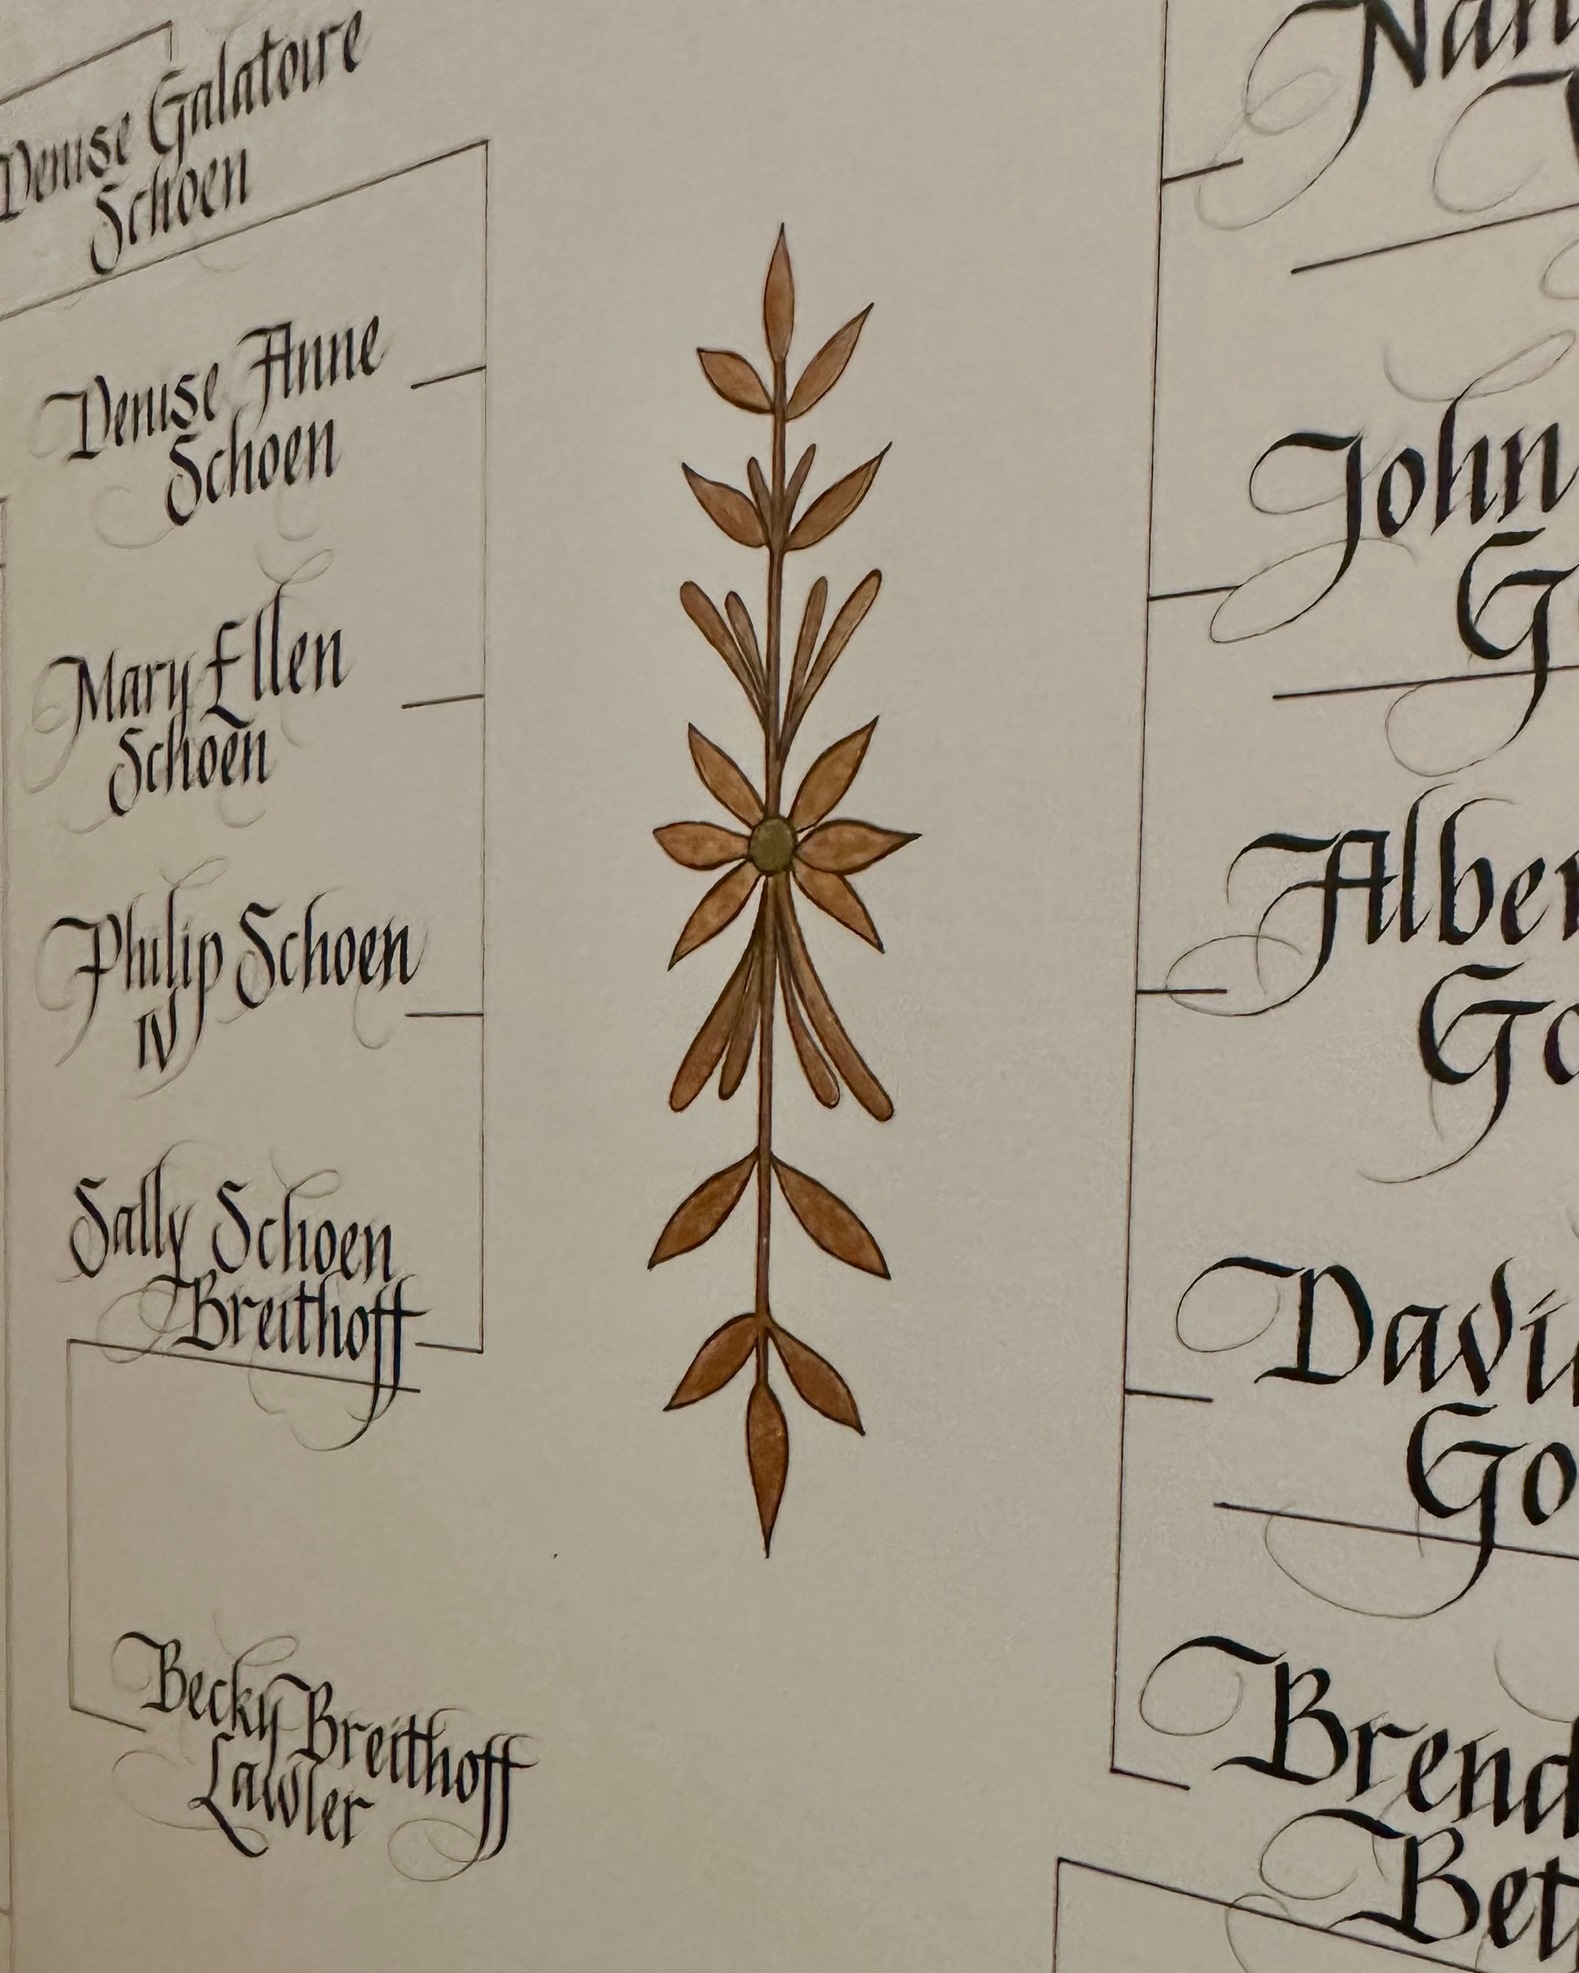 Denise Galatoire
Schoen
Denise Anne
Schoen
Mary Ellen
Schoen
Philip Schoen
IV
Sally Schoen
Breithoff
Becky Breithoff
Lawler
Nan
John
G
Alber
Go
Davi
Go
Brend
Bet